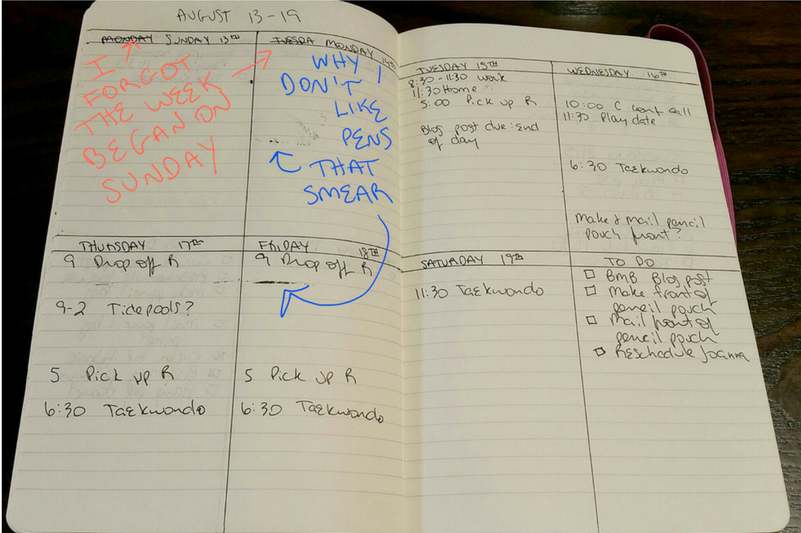 AUGUST 13-19
MONDAY SUNDAY 13TH
I
FORGOT
THE WEEK
BEGAN ON
SUNDAY
TUESDA MONDAY 14TH
WHY I
DON'T
LIKE
PENS
THAT
SMEAR
TUESDAY 15TH
8:30 - 11:30 Work
11:30 Home
5:00 Pick up R
Blog post due: End
of day
WEDNESDAY 16TH
10:00 C conf call
11:30 Playdate
6:30 Taekwondo
Make & mail pencil
pouch front?
THURSDAY 17TH
9 Drop off R
9-2 Tidepools?
5 Pick up R
6:30 Taekwondo
FRIDAY 18TH
9 Drop off R
5 Pick up R
6:30 Taekwondo
SATURDAY 19TH
11:30 Taekwondo
TO DO
BMB Blog post
Make front of
pencil pouch
Mail front of
pencil pouch
Reschedule Joanna